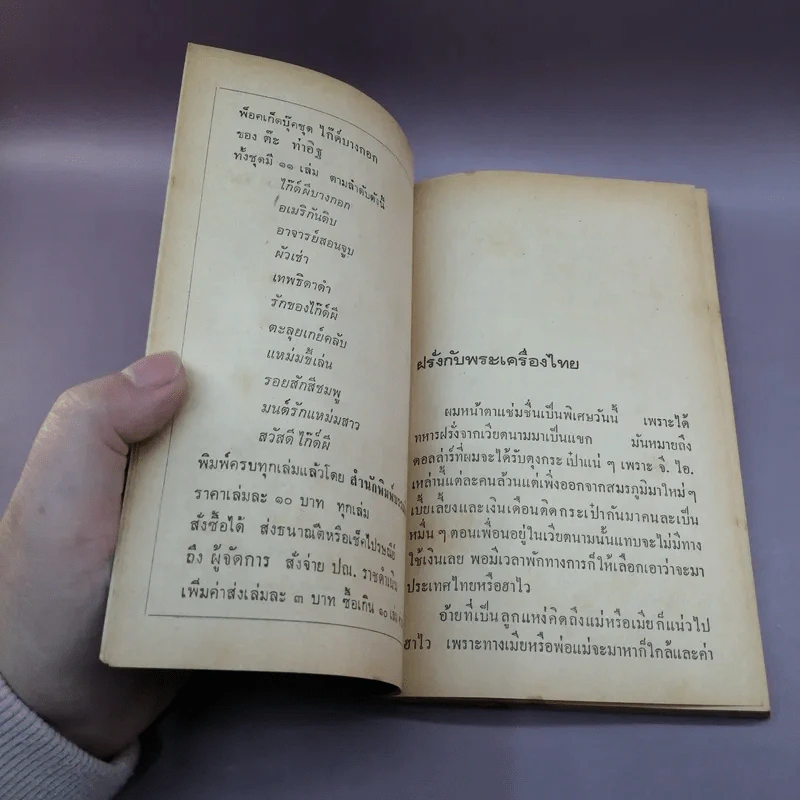 พ็อคเก็ตบุ๊คชุด ไก๊ด์บางกอก
ของ ต๊ะ ท่าอิฐ
ทั้งชุดมี ๑๑ เล่ม ตามลำดับดังนี้
ไก๊ด์ผีบางกอก
อเมริกันดิบ
อาจารย์สอนจูบ
ผัวเช่า
เทพธิดาดำ
รักของไก๊ด์ผี
ตะลุยเกย์คลับ
แหม่มขี้เล่น
รอยสักสีชมพู
มนต์รักแหม่มสาว
สวัสดี ไก๊ด์ผี
พิมพ์ครบทุกเล่มแล้วโดย สำนักพิมพ์
ราคาเล่มละ ๑๐ บาท ทุกเล่ม
สั่งซื้อได้ ส่งธนาณัติหรือเช็คไปรษณีย์
ถึง ผู้จัดการ สั่งจ่าย ปณ. ราชดำเนิน
เพิ่มค่าส่งเล่มละ ๓ บาท ซื้อเกิน ๑๐ เล่ม
ฝรั่งกับพระเครื่องไทย
ผมหน้าตาแช่มชื่นเป็นพิเศษวันนี้ เพราะได้
ทหารฝรั่งจากเวียตนามมาเป็นแขก มันหมายถึง
ดอลล่าร์ที่ผมจะได้รับตุงกระเป๋าแน่ ๆ เพราะ จี. ไอ.
เหล่านี้แต่ละคนล้วนแต่เพิ่งออกจากสมรภูมิมาใหม่ ๆ
เบี้ยเลี้ยงและเงินเดือนติดกระเป๋ากันมาคนละเป็น
หมื่น ๆ ตอนเพื่อนอยู่ในเวียตนามนั้นแทบจะไม่มีทาง
ใช้เงินเลย พอมีเวลาพักทางการก็ให้เลือกเอาว่าจะมา
ประเทศไทยหรือฮาไว
อ้ายที่เป็นลูกแหง่คิดถึงแม่หรือเมียก็แน่วไป
ฮาไว เพราะทางเมียหรือพ่อแม่จะมาหาก็ใกล้และค่า